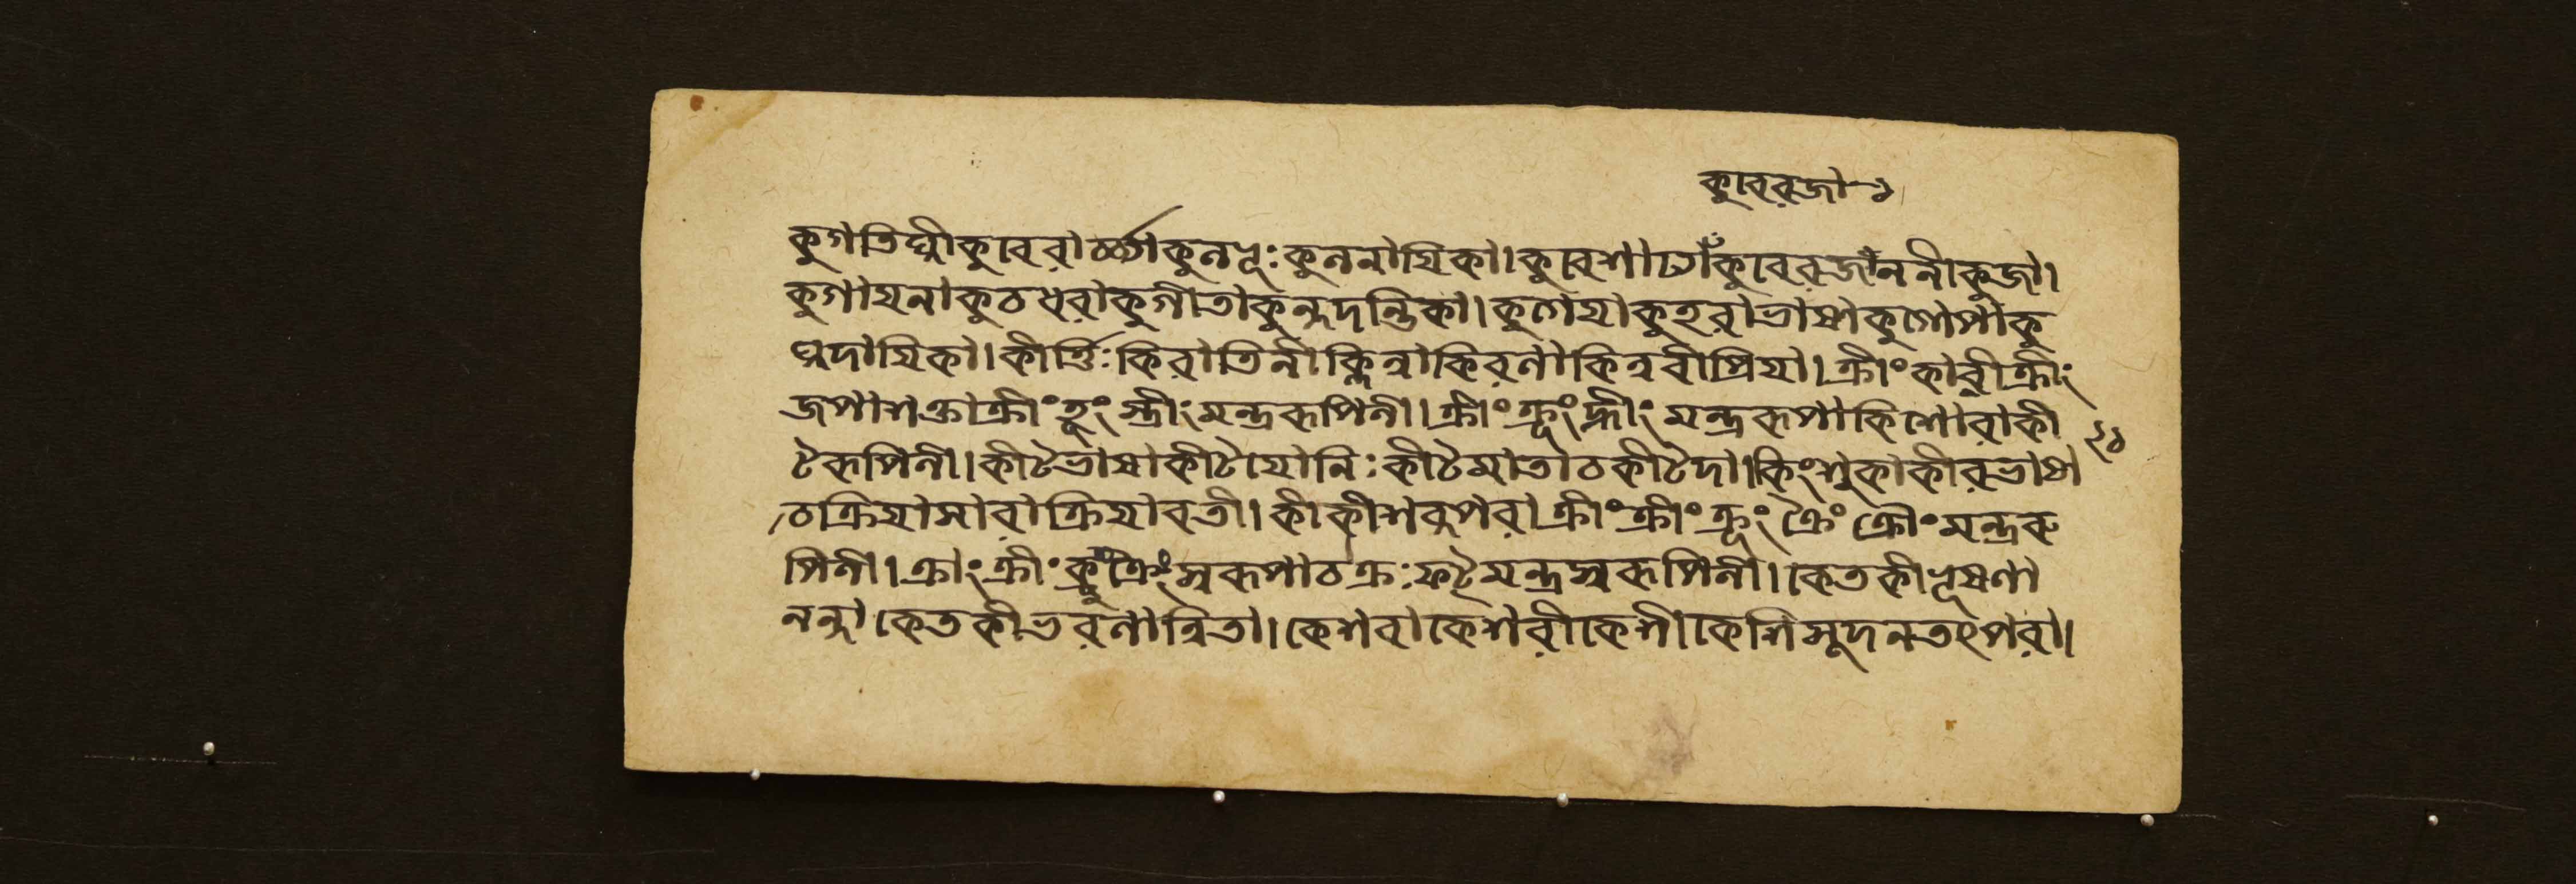 কুবেরজা ১
কুগতিঘ্নীকুবেরার্চ্চাকুনভূঃকুননায়িকা।কুবেশাটোঁকুবেরজাঁননীকুজা।
কুগায়নাকুচধরাকুগীতাকুন্দদন্তিকা।কুগেয়াকুহরাভাষাকুগোপাকু
ঘ্নদায়িকা।কীর্ত্তিঃকিরাতিনীক্লিন্নাকিরণাকিন্নরীপ্রিয়া।ক্রীংকারীক্রীং
জপাশক্তাক্রীংহূংস্ত্রীংমন্ত্ররূপিনী।ক্রীংক্রূংহ্রীংমন্ত্ররূপাকিশোরাকী
টরূপিনী।কীটভাষাকীটযোনিঃকীটমাতাচকীটদা।কিংশুকাকীরভাষা
২১
চক্রিয়াসারাক্রিয়াবতী।কীকীশবপরাক্রীংক্রীংক্রূংক্রৈংক্রৌংমন্ত্ররু
পিনী।ক্রাংক্রীংক্রুঁক্রিংস্বরূপাচক্রঃফট্‌মন্ত্রস্বরূপিনী।কেতকীভূষণা
নন্দাকেতকীভরণান্বিতা।কেশবাকেশরীকেশীকেশিসূদনতৎপরা।